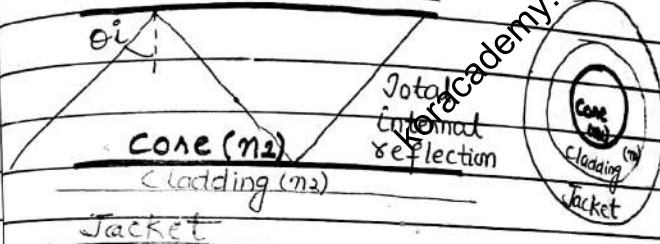 θi
Total
internal
reflection
Core (n1)
Cladding (n2)
Jacket
Core
Cladding (n)
Jacket
koracademy.